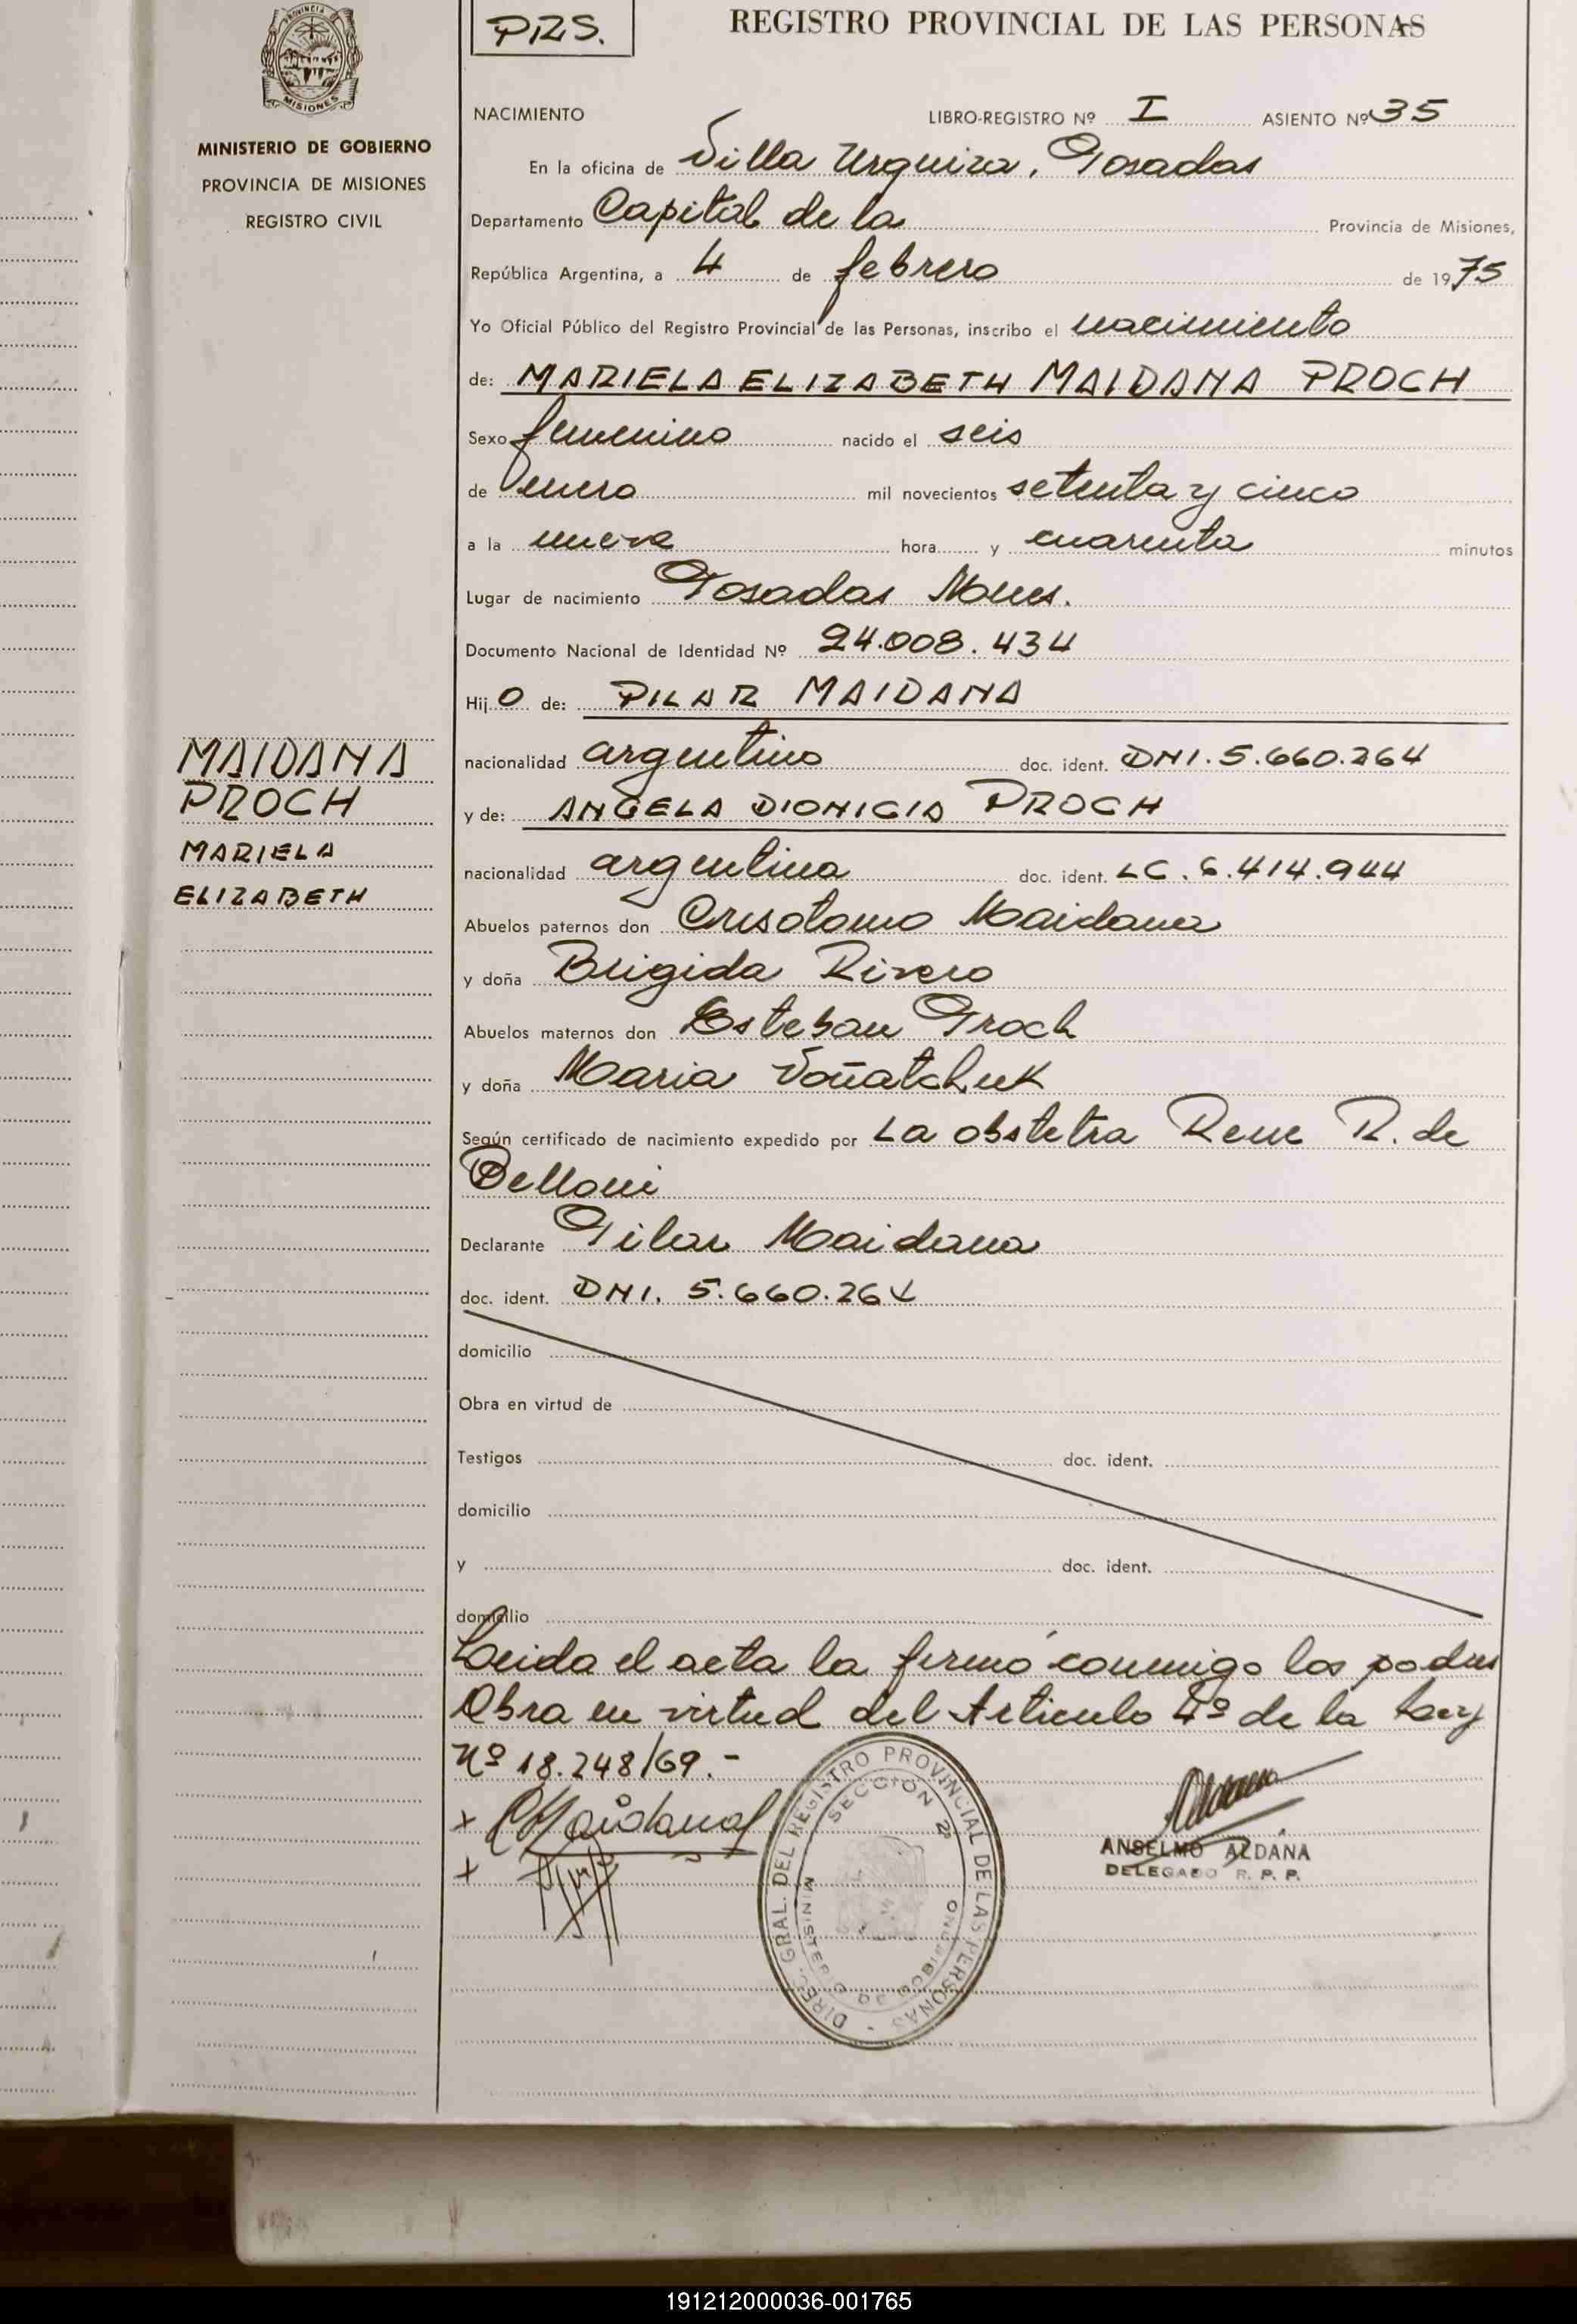 PRS.
REGISTRO PROVINCIAL DE LAS PERSONAS
PROVINCIA
MISIONES
MINISTERIO DE GOBIERNO
PROVINCIA DE MISIONES
REGISTRO CIVIL
NACIMIENTO LIBRO-REGISTRO Nº I ASIENTO Nº 35
En la oficina de Villa Urquiza, Posadas
Departamento Capital de la Provincia de Misiones,
República Argentina, a 4 de febrero de 1975
Yo Oficial Público del Registro Provincial de las Personas, inscribo el nacimiento
de: MARIELA ELIZABETH MAIDANA PROCH
Sexo femenino nacido el seis
de enero mil novecientos setenta y cinco
a la nueve hora y cuarenta minutos
Lugar de nacimiento Posadas Mnes.
Documento Nacional de Identidad Nº 24.008.434
Hij o de: PILAR MAIDANA
nacionalidad argentino doc. ident. DNI. 5.660.264
y de: ANGELA DIONICIA PROCH
nacionalidad argentina doc. ident. LC. 6.414.944
Abuelos paternos don Crisotomo Maidana
y doña Brigida Rivero
Abuelos maternos don Esteban Proch
y doña Maria Voñatchuk
Según certificado de nacimiento expedido por La obstetra Rene R. de
Belloni
Declarante Pilar Maidana
doc. ident. DNI. 5.660.264
domicilio
Obra en virtud de
Testigos doc. ident.
domicilio
y doc. ident.
domicilio
Leida el acta la firmó conmigo los padres
Obra en virtud del Articulo 4º de la Ley
Nº 18.248/69.-
MAIDANA
PROCH
MARIELA
ELIZABETH
x Maidana
x
DIREC. GRAL. DEL REGISTRO PROVINCIAL DE LAS PERSONAS -
SECCIÓN 2ª
MINISTERIO DE GOBIERNO
ANSELMO ALDANA
DELEGADO R. P. P.
191212000036-001765